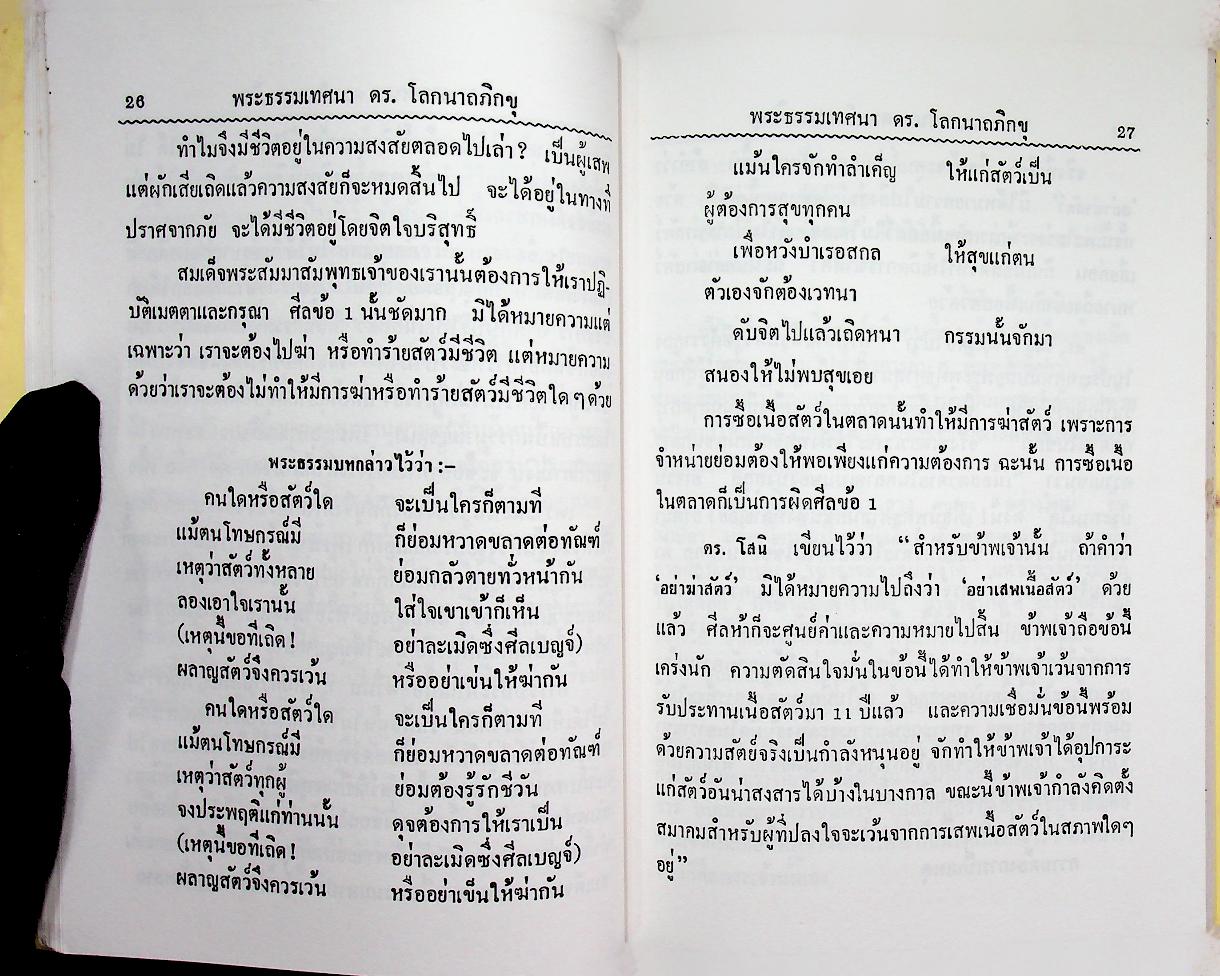 26 พระธรรมเทศนา ดร. โลกนาถภิกขุ
ทำไมจึงมีชีวิตอยู่ในความสงสัยตลอดไปเล่า? เป็นผู้เสพ
แต่ผักเสียเถิดแล้วความสงสัยก็จะหมดสิ้นไป จะได้อยู่ในทางที่
ปราศจากภัย จะได้มีชีวิตอยู่โดยจิตใจบริสุทธิ์
สมเด็จพระสัมมาสัมพุทธเจ้าของเรานั้นต้องการให้เราปฏิ-
บัติเมตตาและกรุณา ศีลข้อ 1 นั้นชัดมาก มิได้หมายความแต่
เฉพาะว่า เราจะต้องไปฆ่า หรือทำร้ายสัตว์มีชีวิต แต่หมายความ
ด้วยว่าเราจะต้องไม่ทำให้มีการฆ่าหรือทำร้ายสัตว์มีชีวิตใด ๆ ด้วย
พระธรรมบทกล่าวไว้ว่า :–
คนใดหรือสัตว์ใด จะเป็นใครก็ตามที
แม้ตนโทษกรณ์มี ก็ย่อมหวาดขลาดต่อทัณฑ์
เหตุว่าสัตว์ทั้งหลาย ย่อมกลัวตายทั่วหน้ากัน
ลองเอาใจเรานั้น ใส่ใจเขาเข้าก็เห็น
(เหตุนี้ขอทีเถิด! อย่าละเมิดซึ่งศีลเบญจ์)
ผลาญสัตว์จึงควรเว้น หรืออย่าเข่นให้ฆ่ากัน
คนใดหรือสัตว์ใด จะเป็นใครก็ตามที
แม้ตนโทษกรณ์มี ก็ย่อมหวาดขลาดต่อทัณฑ์
เหตุว่าสัตว์ทุกผู้ ย่อมต้องรู้รักชีวัน
จงประพฤติแก่ท่านนั้น ดุจต้องการให้เราเป็น
(เหตุนี้ขอทีเถิด! อย่าละเมิดซึ่งศีลเบญจ์)
ผลาญสัตว์จึงควรเว้น หรืออย่าเข็นให้ฆ่ากัน
พระธรรมเทศนา ดร. โลกนาถภิกขุ 27
แม้นใครจักทำลำเค็ญ ให้แก่สัตว์เป็น
ผู้ต้องการสุขทุกคน
เพื่อหวังบำเรอสกล ให้สุขแก่ตน
ตัวเองจักต้องเวทนา
ดับจิตไปแล้วเถิดหนา กรรมนั้นจักมา
สนองให้ไม่พบสุขเอย
การซื้อเนื้อสัตว์ในตลาดนั้นทำให้มีการฆ่าสัตว์ เพราะการ
จำหน่ายย่อมต้องให้พอเพียงแก่ความต้องการ ฉะนั้น การซื้อเนื้อ
ในตลาดก็เป็นการผิดศีลข้อ 1
ดร. โสนิ เขียนไว้ว่า “สำหรับข้าพเจ้านั้น ถ้าคำว่า
‘อย่าฆ่าสัตว์’ มิได้หมายความไปถึงว่า ‘อย่าเสพเนื้อสัตว์’ ด้วย
แล้ว ศีลห้าก็จะศูนย์ค่าและความหมายไปสิ้น ข้าพเจ้าถือข้อนี้
เคร่งนัก ความตัดสินใจมั่นในข้อนี้ได้ทำให้ข้าพเจ้าเว้นจากการ
รับประทานเนื้อสัตว์มา 11 ปีแล้ว และความเชื่อมั่นข้อนี้พร้อม
ด้วยความสัตย์จริงเป็นกำลังหนุนอยู่ จักทำให้ข้าพเจ้าได้อุปการะ
แก่สัตว์อันน่าสงสารได้บ้างในบางกาล ขณะนี้ข้าพเจ้ากำลังคิดตั้ง
สมาคมสำหรับผู้ที่ปลงใจจะเว้นจากการเสพเนื้อสัตว์ในสภาพใดๆ
อยู่”